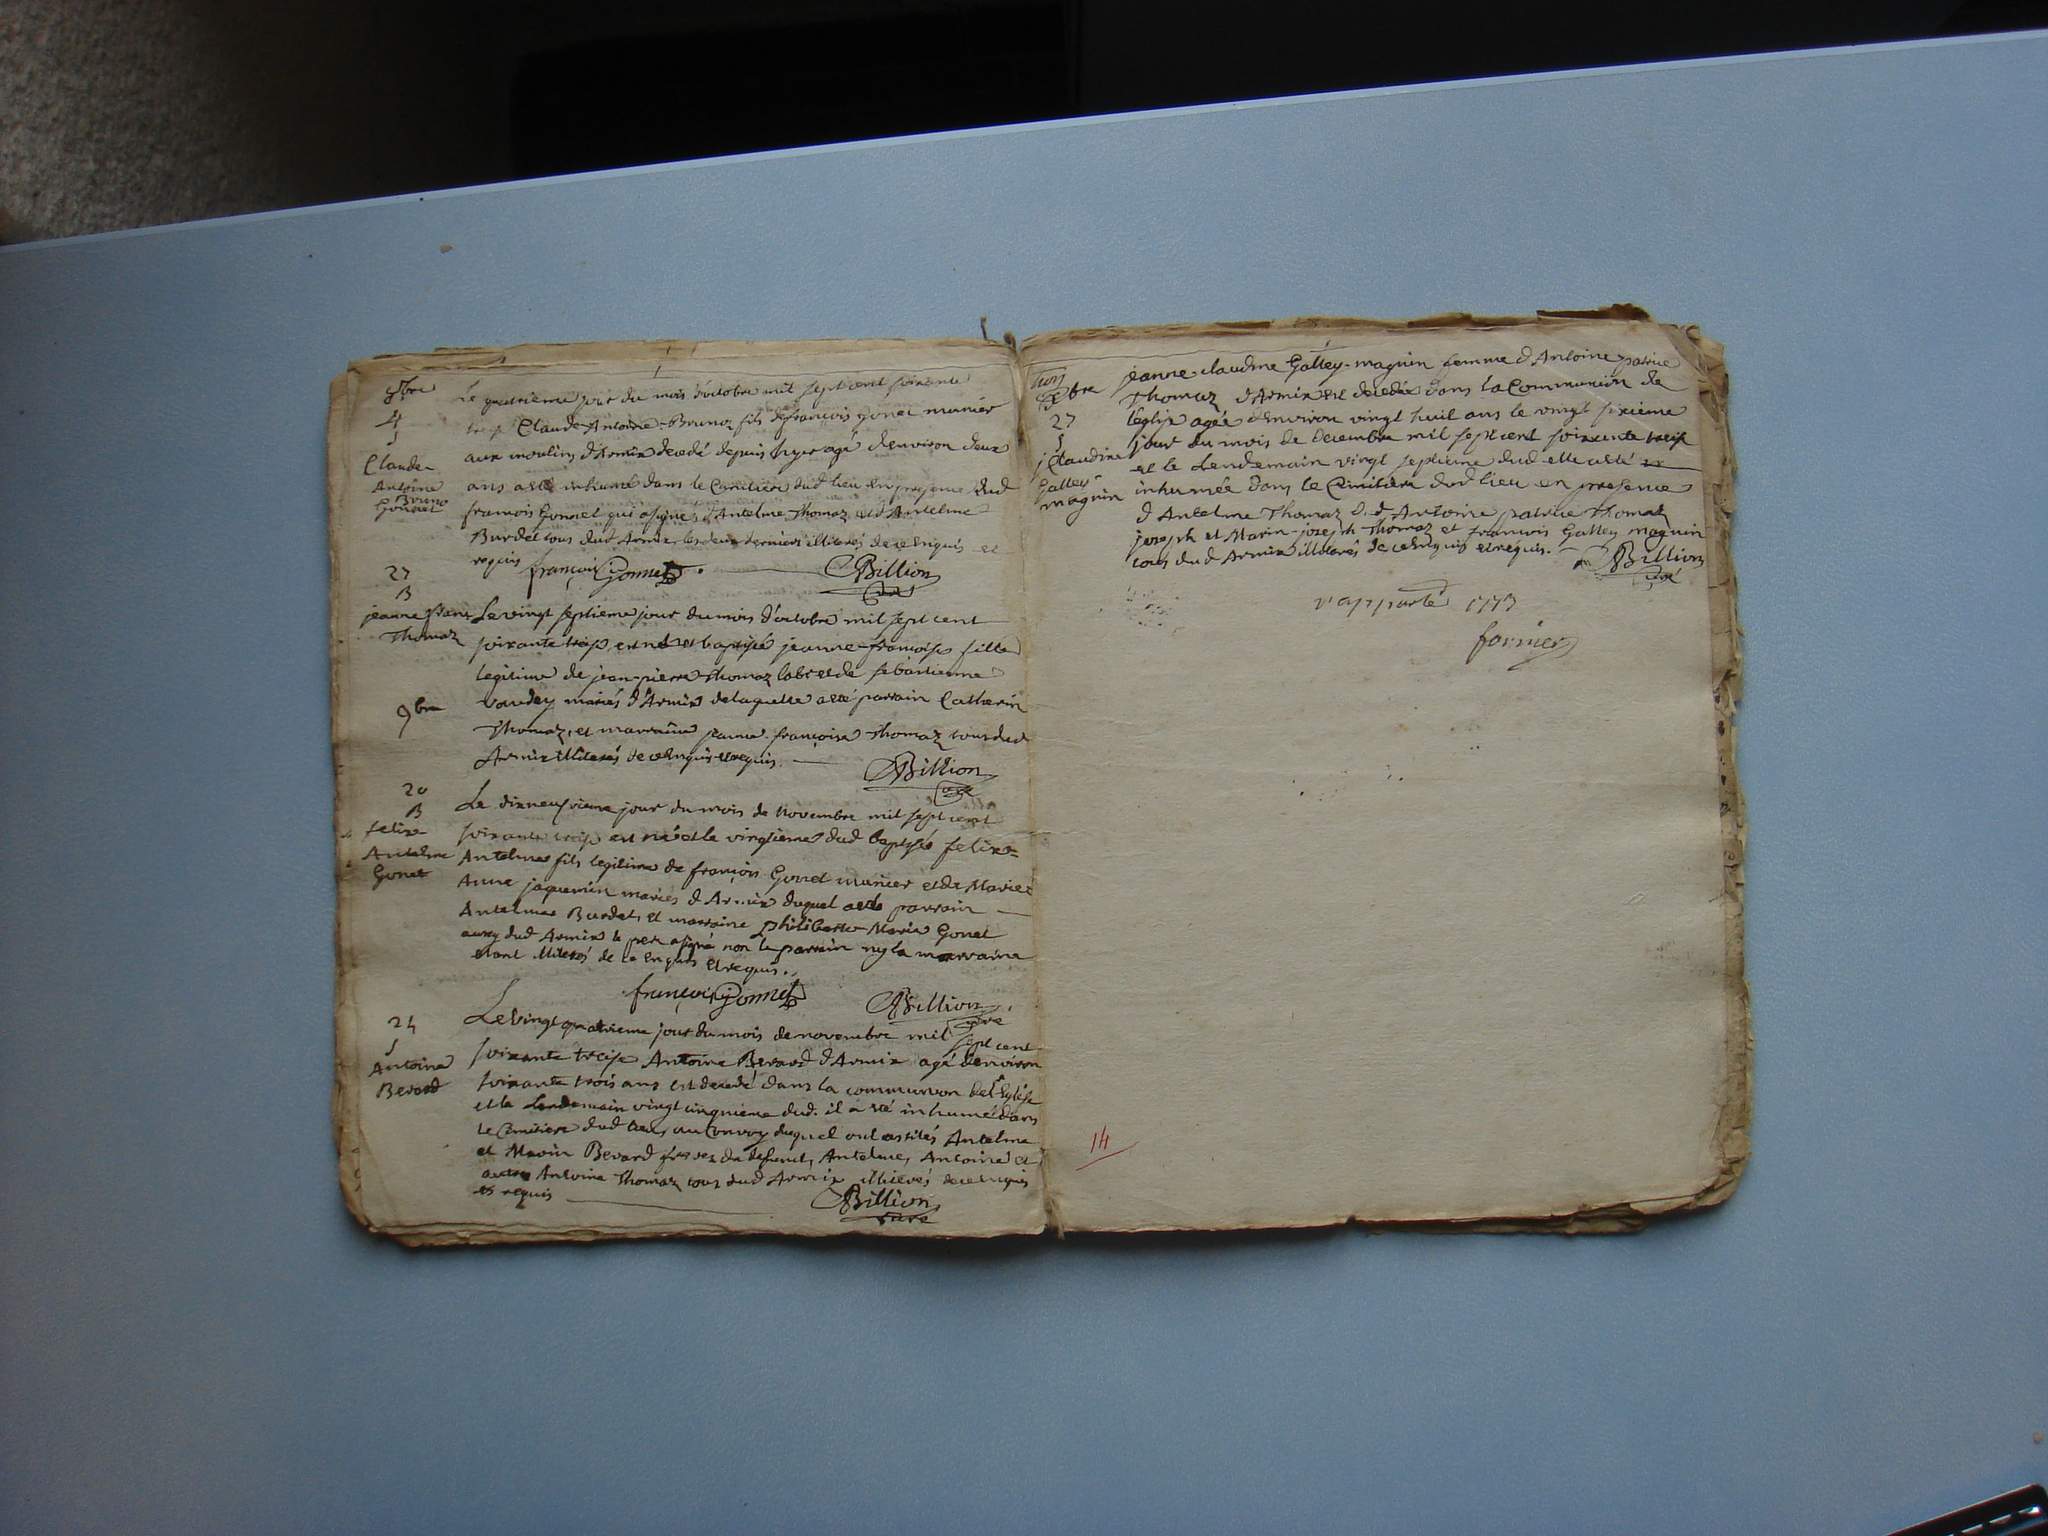 8bre
4
S
Claude
Antoine
Bruno
Gonnet
Le quatrieme jour du mois d'octobre mil sept cent soixante
treise Claude-Antoine-Brunoz fils de françois gonet munier
aux moulins d'Armix decedé depuis hyer agé d'environ deux
ans a esté inhumé dans le Cimitiere dud lieu en presence dud
françois Gonnet qui a signé, d'Antelme Thomaz et d'Antelme
Burdet tous dud Armix, les deux derniers illiterés de ce enquis et
requis françois Gonnet. Billion
curé
27
B
jeanne frans
Thomaz
Le vingt septieme jour du mois d'octobre mil sept cent
soixante treise est né et baptisé jeanne-françoise fille
legitime de jean-pierre Thomaz labr et de sebastienne
vaudey mariés d'Armix de laquelle a esté parrain Catherin
Thomaz, et marraine jeanne françoise Thomaz tous dud
Armix illiterés de ce enquis et requis.
Billion
curé
9bre
20
B
felix
Antelme
Gonet
Le dixneufvieme jour du mois de novembre mil sept cent
soixante treise est né et le vingtieme dud baptisé felix=
Antelme fils legitime de françois Gonet munier et de Marie=
Anne jaquemin mariés d'Armix duquel a esté parrain
Antelme Burdet, et marraine philiberte-Marie Gonet
aussy dud Armix le pere a signé non le parrain ny la marraine
etant illiterés de ce enquis et requis.
françois Gonnet Billion
curé
24
S
Antoine
Berard
Le vingt quatrieme jour du mois de novembre mil sept cent
soixante treise Antoine Berard d'Armix agé d'environ
soixante trois ans est decedé dans la communion de l'Eglise
et le Lendemain vingt cinquieme dud. il a eté inhumé dans
le Cimitiere dud lieu, au Convoy duquel ont assités Antelme
et Marin Berard freres du defunct, Antelme, Antoine et
autre Antoine Thomaz tous dud Armix illiterés de ce enquis
et requis Billion
curé
Xbre
27
S
j Claudine
Galley
magnin
jeanne claudine Galley-magnin femme d'Antoine patrice
Thomaz d'Armix est decedée dans la Communion de
l'eglise agée d'environ vingt huit ans le vingt sixieme
jour du mois de decembre mil sept cent soixante treise
et le Lendemain vingt septieme dud elle a eté
inhumée dans le Cimitiere dud lieu en presence
d'Antelme Thomaz d'Antoine patrice Thomaz
joseph et Marin-joseph Thomaz et françois Galley magnin
tous dud Armix illiterés de ce enquis et requis. Billion
curé
rapporté 1773
fornier
14